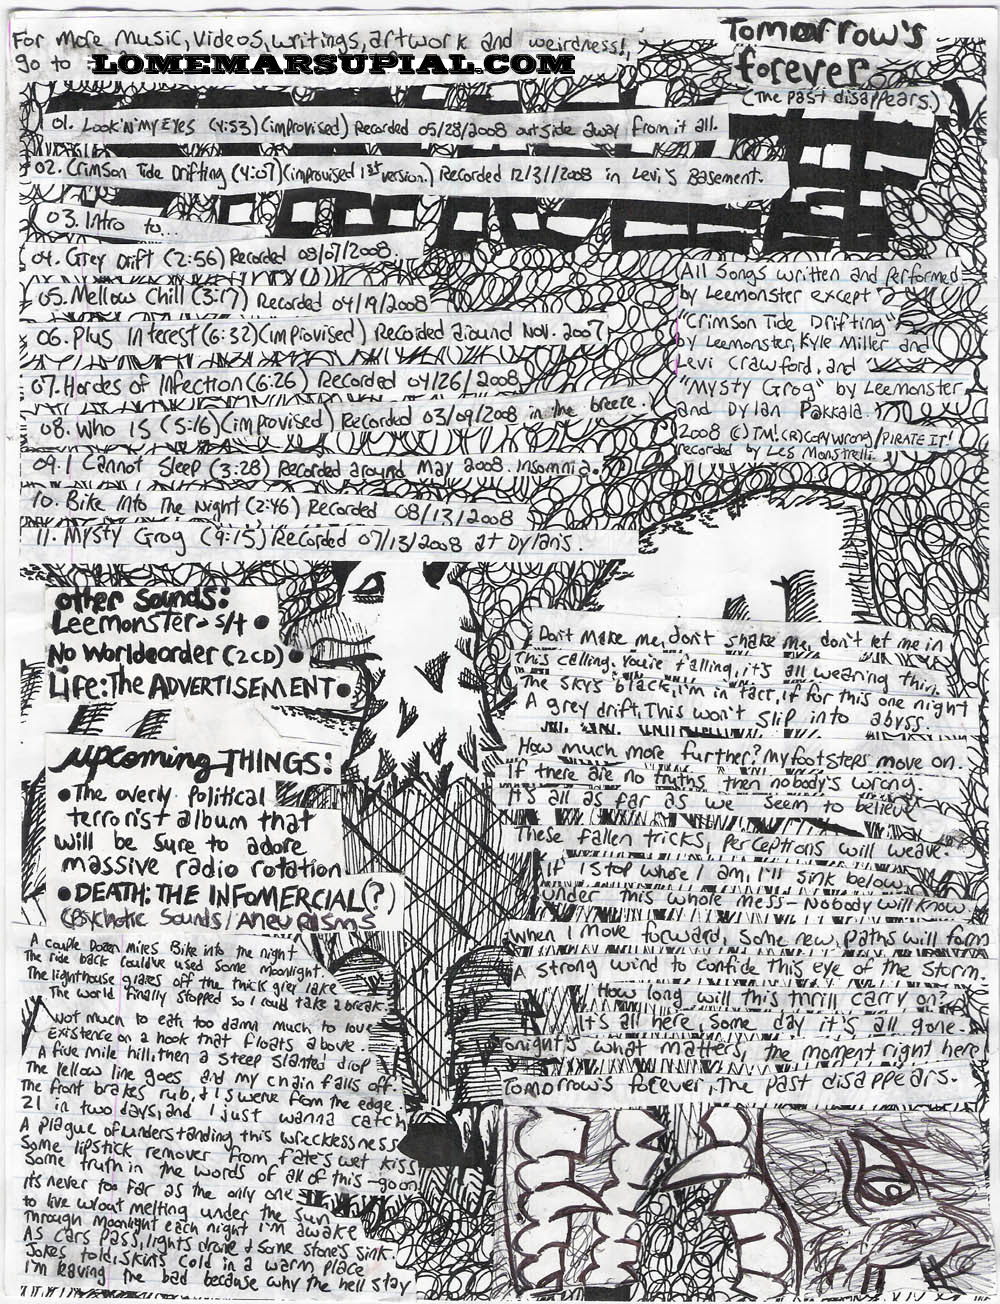 For more music, videos, writings, artwork and weirdness!,
go to LOMEMARSUPIAL.COM
Tomorrow's
forever
(The past disappears.)
01. Look'N'My Eyes (4:53)(improvised) Recorded 05/28/2008 outside away from it all.
02. Crimson Tide Drifting (4:07)(improvised 1st version.) Recorded 12/31/2008 in Levi's Basement.
03. Intro to...
04. Grey Drift (2:56) Recorded 08/07/2008.
05. Mellow Chill (3:17) Recorded 04/19/2008
06. Plus Interest (6:32)(improvised) Recorded around Nov. 2007
07. Hordes of Infection (6:26) Recorded 04/26/2008
08. Who IS (5:16)(improvised) Recorded 03/09/2008 in the breeze.
09. I Cannot Sleep (3:28) Recorded around May 2008. Insomnia.
10. Bike Into The Night (2:46) Recorded 08/13/2008
11. Mysty Grog (9:15) Recorded 07/13/2008 at Dylan's.
All Songs written and performed
by Leemonster except
"Crimson Tide Drifting"
by Leemonster, Kyle Miller and
Levi Crawford, and
"Mysty Grog" by Leemonster
and Dylan Pakkala.
2008 (C)TM!(R)COPYWRONG/PIRATE IT!
recorded by Les Monstrelli.
other sounds:
Leemonster - s/t •
No Worldeorder (2CD) •
Life: The ADVERTISEMENT •
upcoming THINGS:
• The overly political
terrorist album that
will be sure to adore
massive radio rotation
• DEATH: THE INFOMERCIAL(?)
(Psychotic Sounds/Aneurisms
Don't make me, don't shake me, don't let me in
This calling. You're falling, it's all wearing thin.
The sky's black, I'm in fact, if for this one night
A grey drift, This won't slip into abyss.
How much more further? My footsteps move on.
If there are no truths, then nobody's wrong.
It's all as far as we seem to believe
These fallen tricks, perceptions will weave.
If I stop where I am, I'll sink below
under this whole mess - Nobody will know.
when I move forward, some new paths will form
A strong wind to confide this eye of the storm.
How long will this thrill carry on?
It's all here, some day it's all gone.
Tonight's what matters, the moment right here
Tomorrow's forever, the past disappears.
A couple Dozen miles Bike into the night
The ride back could've used some moonlight.
The lighthouse glares off the thick grey lake
The world finally stopped so I could take a break
Not much to eat, too damn much to love
Existence on a hook that floats above.
A five mile hill, then a steep slanted drop
The yellow line goes and my chain falls off.
The front brakes rub, & I swerve from the edge.
21 in two days, and I just wanna catch
A plague of understanding this wrecklessness
Some lipstick remover from fate's wet kiss
Some truth in the words of all of this - goon
it's never too far as the only one
to live w/out melting under the sun
Through Moonlight each night I'm awake
As cars pass, lights drone & some stones sink
Jokes told, skin's cold in a warm place
I'm leaving the bad because why the hell stay